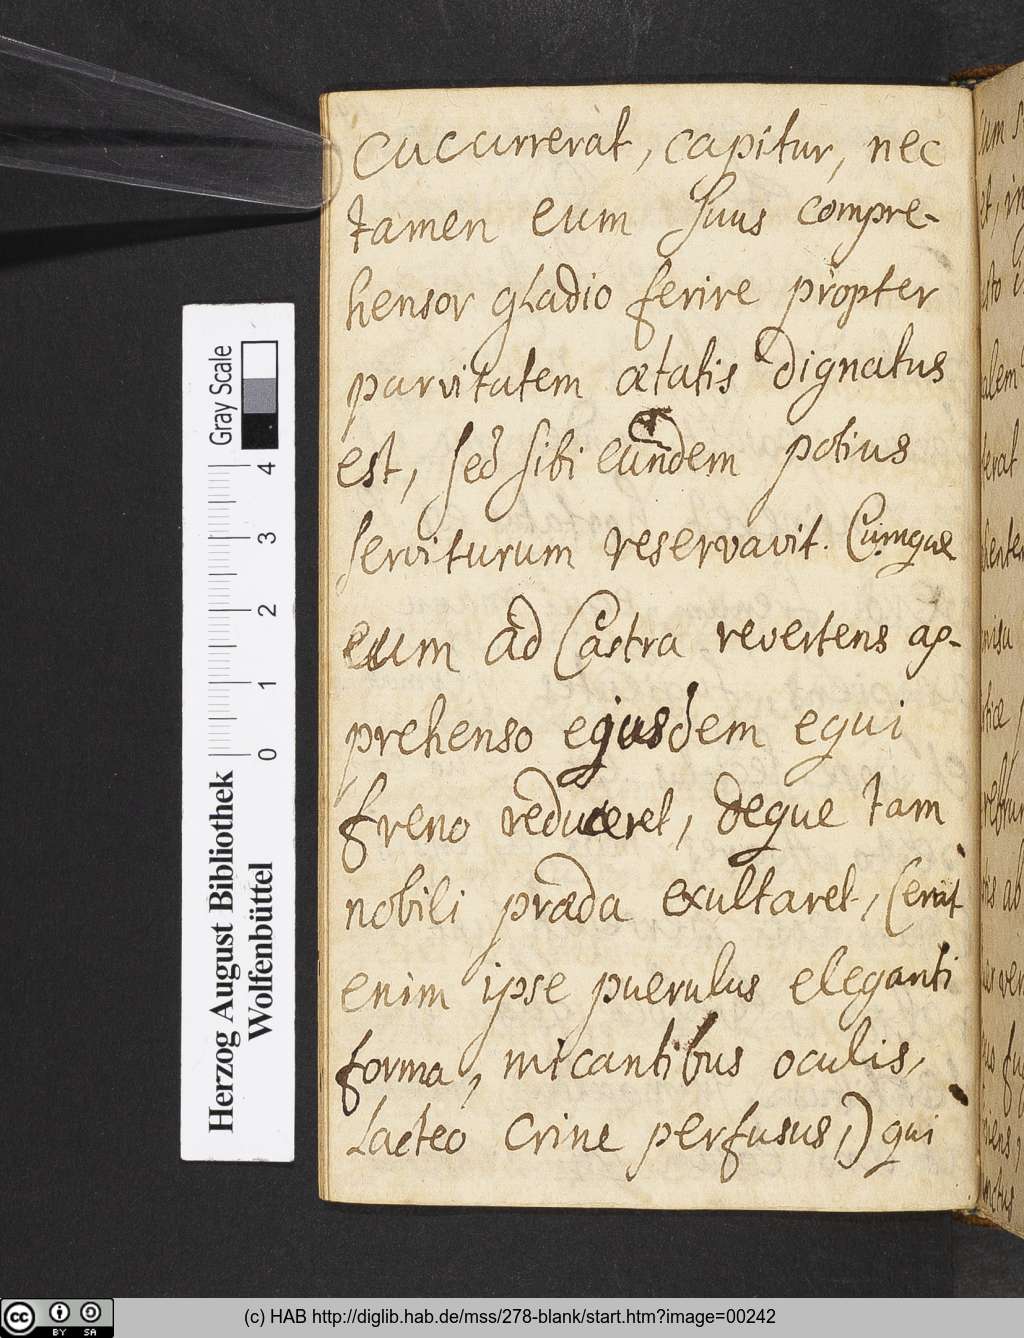 cucurrerat, capitur, nec
tamen eum suus compre-
hensor gladio ferire propter
parvitatem ætatis dignatus
est, sed sibi eundem potius
serviturum reservavit. Cumque
eum ad Castra revertens ap-
prehenso ejusdem equi
freno reduceret, deque tam
nobili præda exultaret, (erat
enim ipse puerulus eleganti
forma, micantibus oculis,
Lacteo crine perfusus,) qui
Gray Scale
0 1 2 3 4
Herzog August Bibliothek
Wolfenbüttel
cc BY SA
(c) HAB http://diglib.hab.de/mss/278-blank/start.htm?image=00242